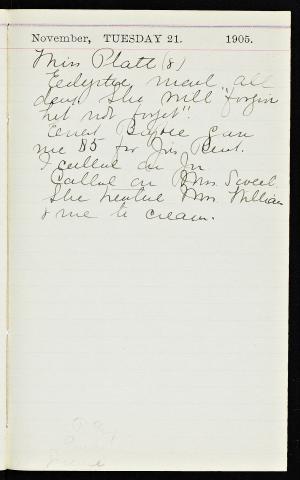 November, TUESDAY 21. 1905.
Miss Platt (8)
meal, all
day. She will "forgive
but not forget".
Ernest gave
me 85 for his Rent.
I called on
Called on Mrs. Sweet.
She treated Mrs William
& me to cream.